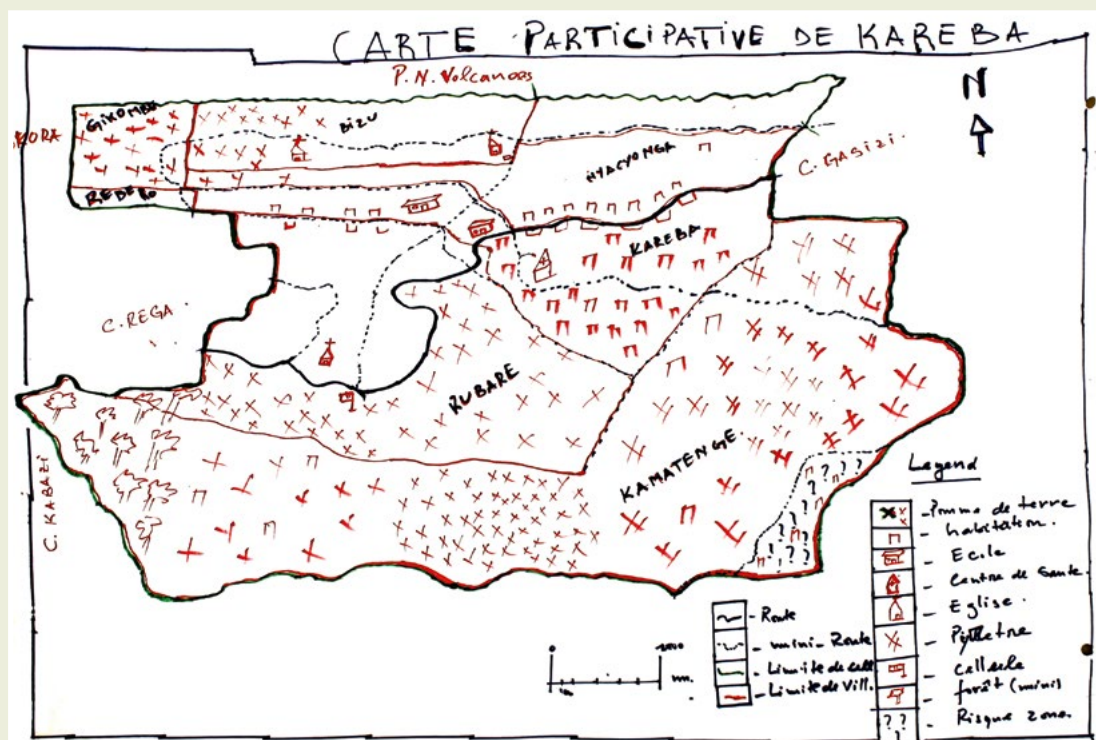 CARTE PARTICIPATIVE DE KAREBA
P.N. Volcanoas
N
GIKOMBA
BIZU
NYACYONGA
C. GASIZI.
REBERO
KAREBA
C. REGA
RUBARE
KAMATENGE.
C. KABAZI
Legend
- Pomme de terre
- habitation.
- Ecole
- Centre de Sante.
- Eglise.
- cellule
- forêt (mini)
- Risque zone.
- Route
- mini-Route
- Limite de cell
- Limite de Vill.
0
? ? ? ?
? ?